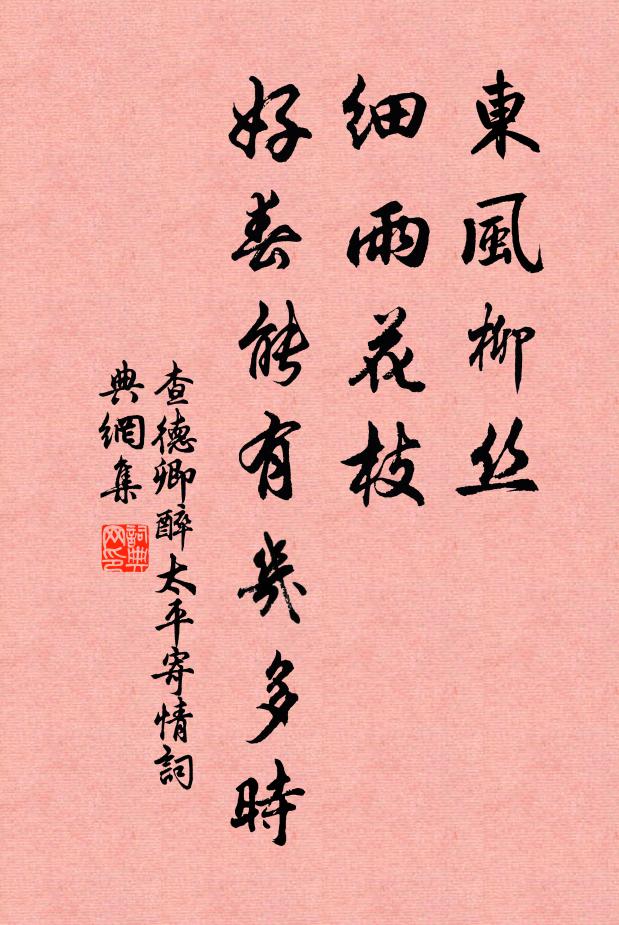 東風柳丝
細雨花枝
好春能有幾多時
查德卿醉太平寄情詞
典網集
詞典
网印